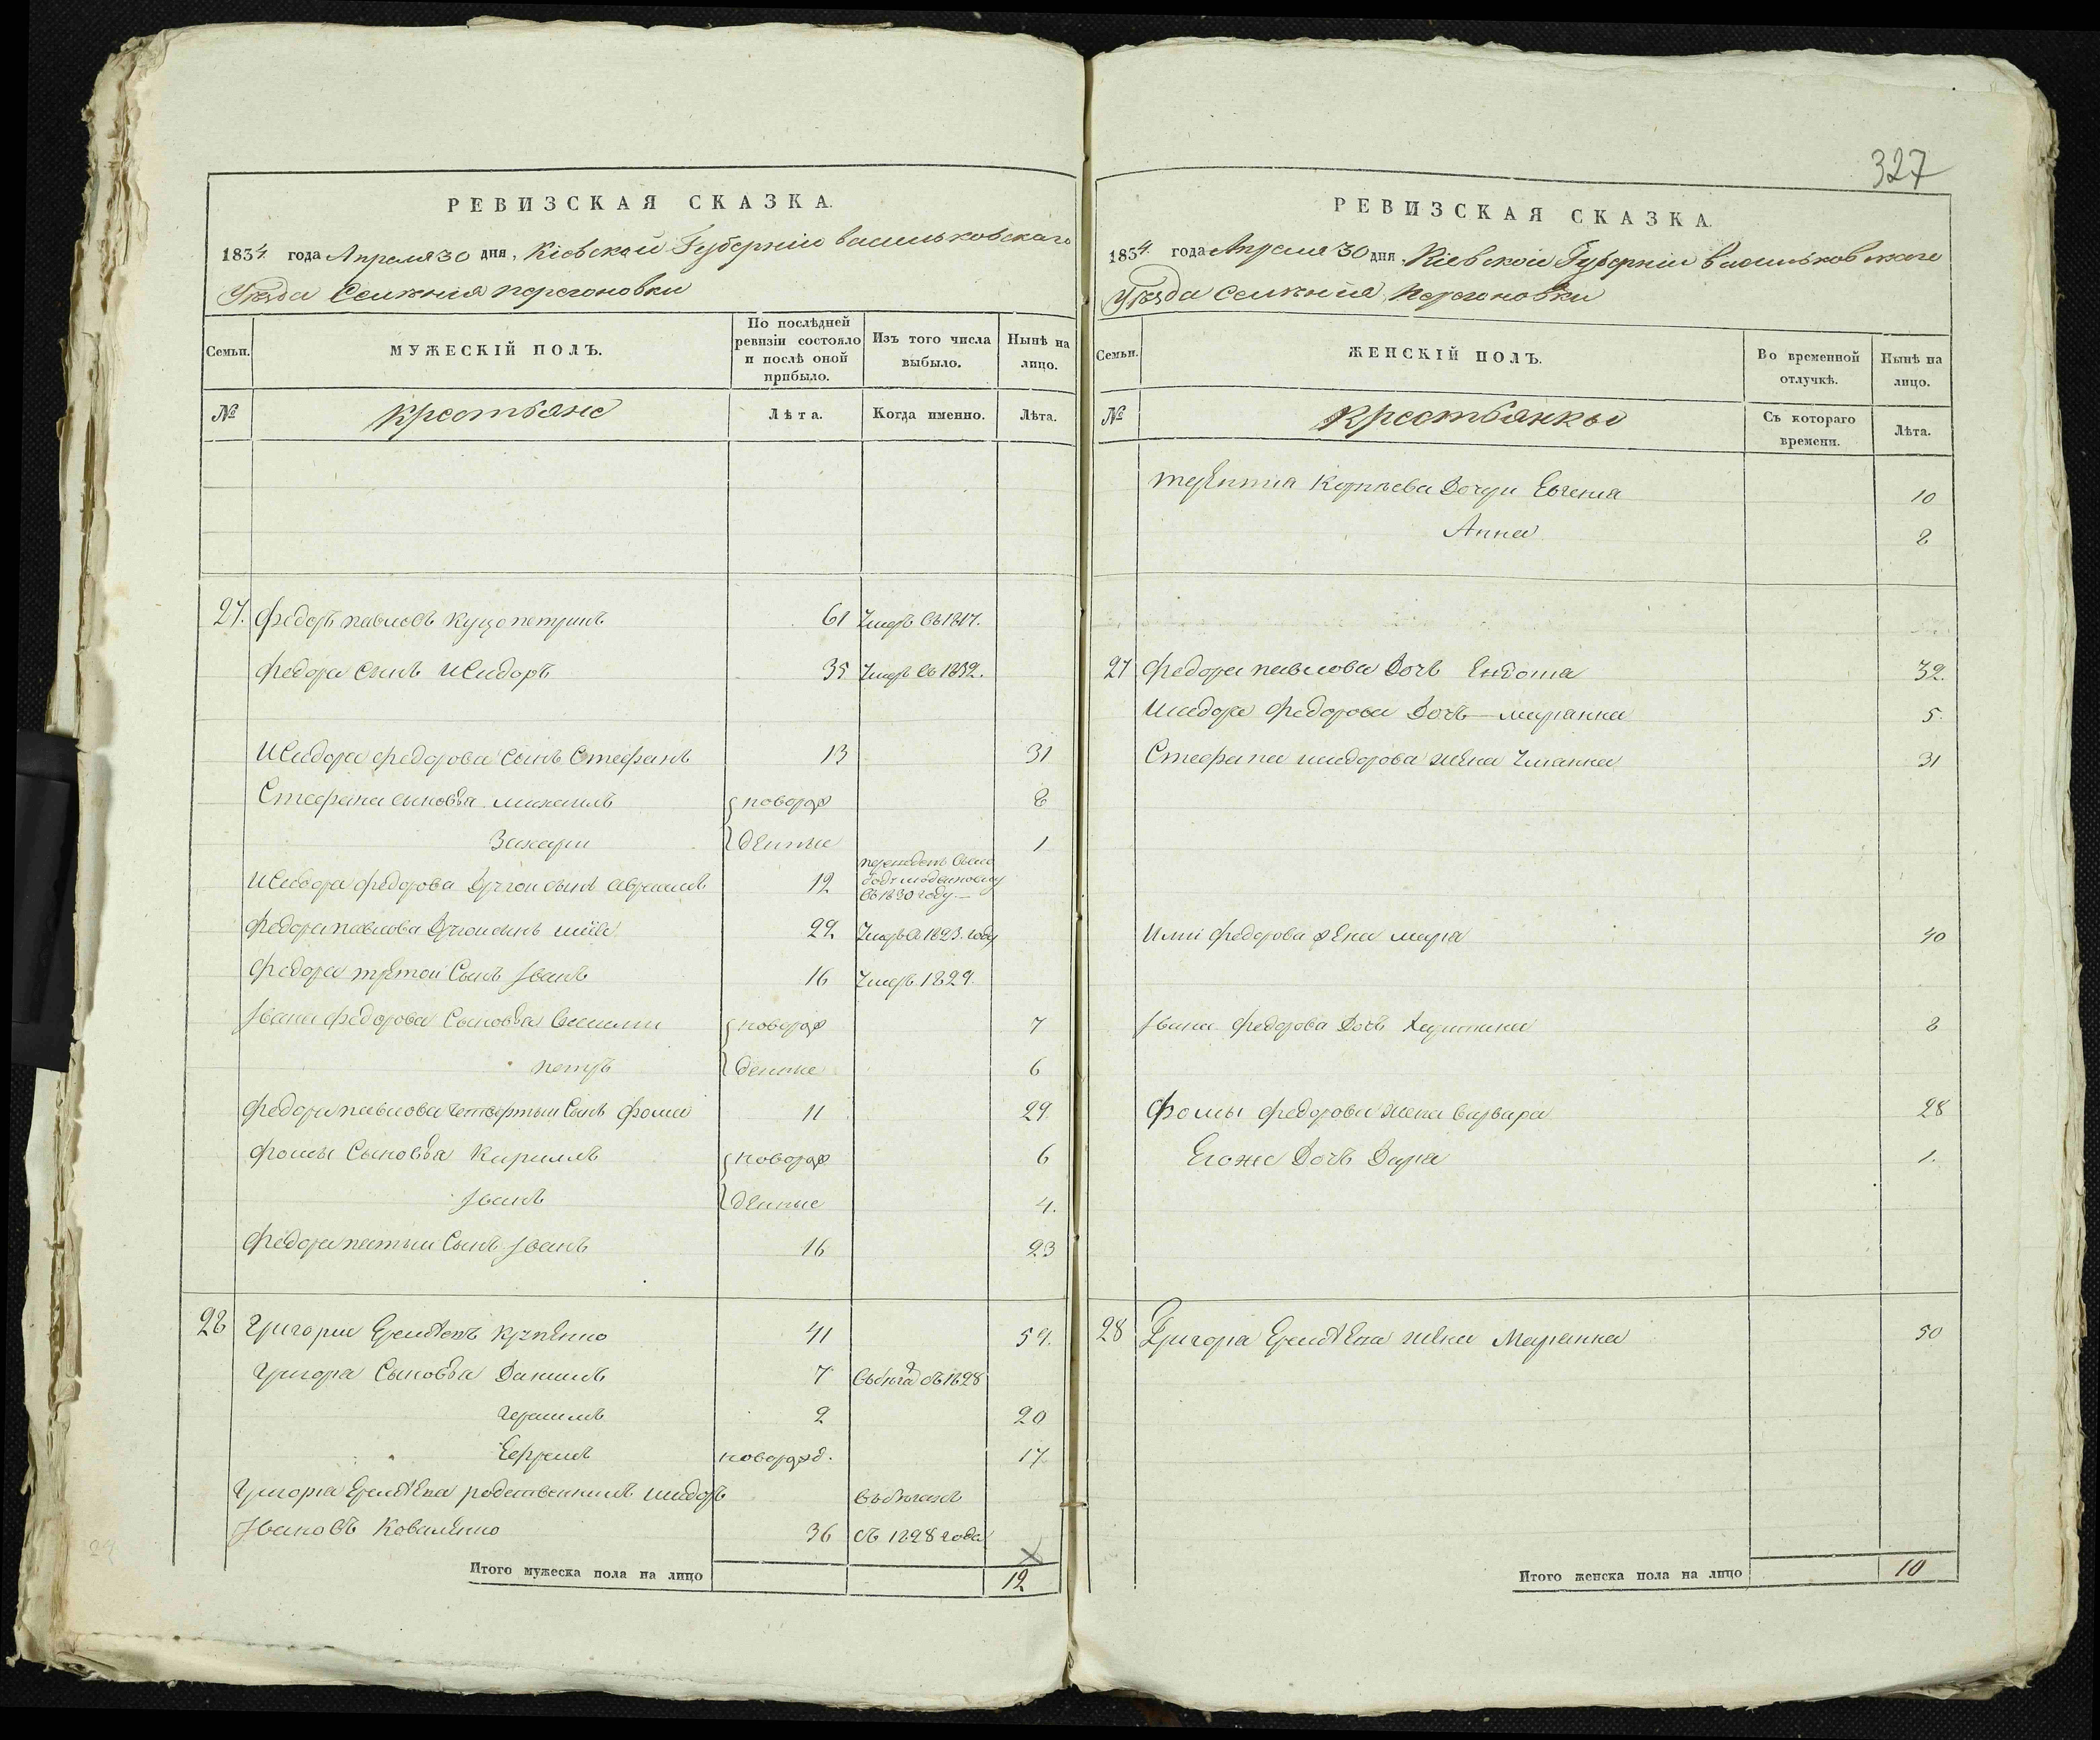 РЕВИЗСКАЯ СКАЗКА.
1834 года Апреля 30 дня, Кіевской Губерніи васильковскаго
Уѣзда Селѣнія перегоновки
Семьи.
МУЖЕСКІЙ ПОЛЪ.
По послѣдней ревизіи состояло и послѣ оной прибыло.
Изъ того числа выбыло.
Нынѣ на лицо.
№
Крестьяне
Лѣта.
Когда именно.
Лѣта.
27. Федоръ павловъ 61 Умеръ въ 1817.
Федора сынъ Исидоръ 35 Умеръ въ 1832.
Исидора федорова сынъ Стефанъ 13 31
Стефана сыновья михаилъ новорож 8
Захари денные 1
Исидора федорова другой сынъ авраамъ 12 въ 1830 году.
Федора павлова другой сынъ 29. Умеръ в 1823. году
Федора третой Сынъ Іванъ 16 Умеръ 1829.
Івана федорова Сыновья василии новорож 7
петръ денные 6
Федора павлова четвертыи Сынъ фома 11 29.
Фомы Сыновья Кирилъ новорож 6
Іванъ денные 4.
Федора пятыи Сынъ Іванъ 16 23
28 Григории 41 59.
Григора Сыновья Данилъ 7 въ 1828
2 20
Ефремъ новорожд. 17
Григора родственникъ исидоръ
Івановъ Коваленко 36 съ 1828 года
Итого мужеска пола на лицо 12
327
РЕВИЗСКАЯ СКАЗКА.
1834 года Апреля 30 дня, Кіевской Губерніи васильковскаго
Уѣзда Селѣнія перегоновки
Семьи.
ЖЕНСКІЙ ПОЛЪ.
Во временной отлучкѣ.
Нынѣ на лицо.
№
Крестьянки
Съ котораго времени.
Лѣта.
Дочери Евгения 10
Анна 8
27 Федора павлова Дочь 32.
Исидора Федорова Дочь марянна 5.
Стефана исидорова жена Ульянна 31
федорова жена марья 40
Івана федорова Дочъ 8
Фомы федорова жена варвара 28
Егоже Дочъ Дарья 1.
28 Григора жена Марянна 50
Итого женска пола на лицо 10